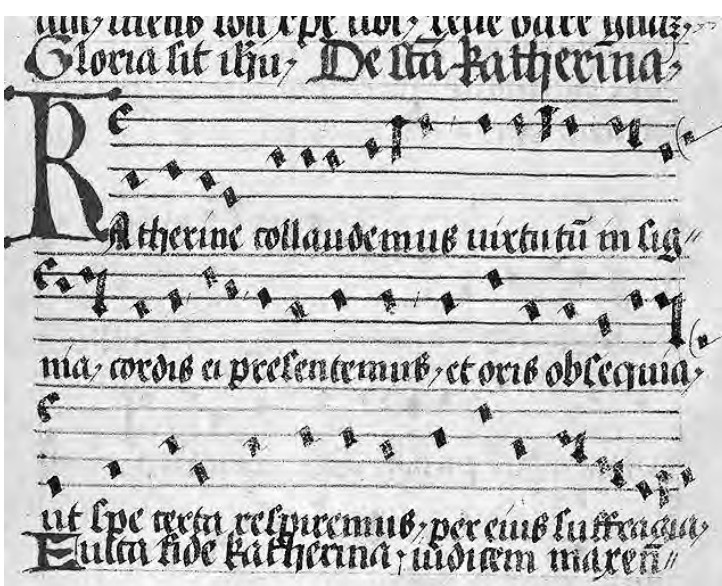 Gloria sit ihu, De scā katherina,
KAtherine collaudemus uirtutū in sig〃
nia, cordis ei presentemus, et oris obsequia,
ut spe certa respiremus, per eius suffragia,
Fulta fide katherina, iudicem maxen̄〃